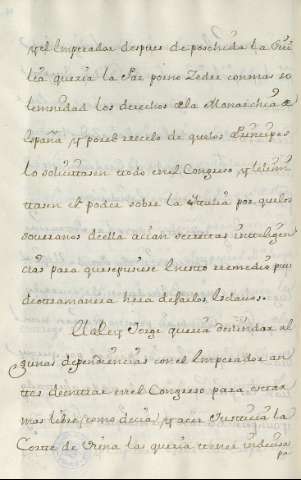 y el Imperador despues de poschida la Sici
lia queria la Paz por no Zeder con mas so
lemnidad los derechos de la Monarchia de
España, y por el rrecelo de que los Principes
lo solicitasen todo en el Congreso, y le limi
tasen el poder sobre la Italia por que los
soueranos de ella acian secretas inteligen
cias para que se pusiese l nesto rremedio pues
de otra manera hera dejarlos esclauos.
El Rey Jorge queria deslindar al
gunas dependencias con el Imperador an
tes de entrar en el Congreso para estar
mas libre (como decia) y acer Justicia la
Corte de Viena las queria tener indecisas
pa